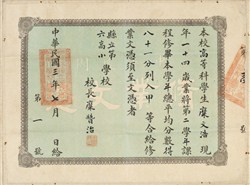 本校高等科學生龐文浩現
年一十四歲業將第二學年課
程修畢本學年總平均分數得
八十一分列入甲等合給修
業文憑須至文憑者
縣立第
六高小學校
校長龐晉治
中華民國三年七月日給
第一號